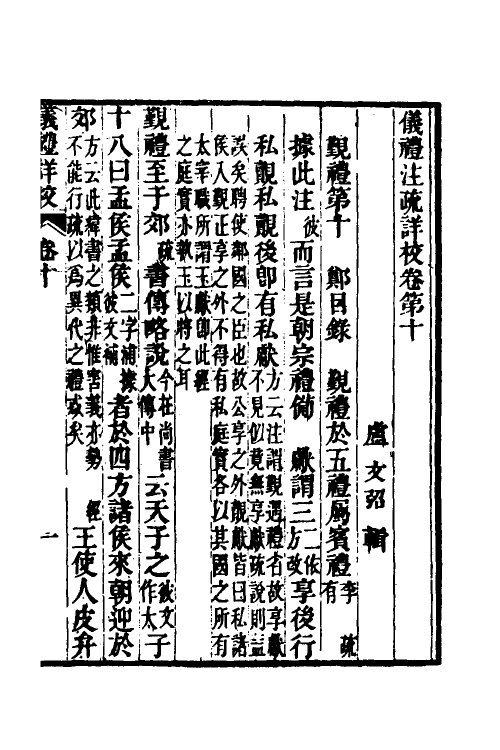 儀禮注疏詳校卷第十
盧文弨輯
覲禮第十 鄭目錄 覲禮於五禮屬賓禮李有 疏
據此注彼而言是朝宗禮備 獻謂三二依方改享後行
私覿私覿後卽有私獻方云注謂覲遇禮省故享獻不見似竟無享獻疏說則益
誤矣聘使鄰國之臣也故公享之外覿獻皆曰私諸
侯入覲正享之外不得有私庭實各以其國之所有
太宰職所謂玉獻卽此經
之庭實亦執玉以將之耳
覲禮至于郊 疏 書傳略說今在尚書大傳中云天子之彼文作太子
十八曰孟侯孟侯二字補據彼文補者於四方諸侯來朝迎於
郊方云此緯書之類非惟害義亦勢不能行疏以爲異代之禮惑矣 經 王使人皮弁
儀禮詳校 卷十 一